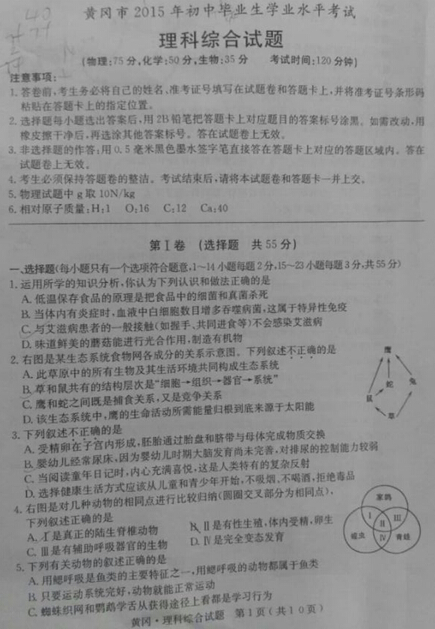 黄冈市2015年初中毕业生学业水平考试
理科综合试题
(物理:75分,化学:50分,生物:35分 考试时间:120分钟)
注意事项:
1.答卷前,考生务必将自己的姓名、准考证号填写在试题卷和答题卡上,并将准考证号条形码
粘贴在答题卡上的指定位置。
2.选择题每小题选出答案后,用2B铅笔把答题卡上对应题目的答案标号涂黑。如需改动,用
橡皮擦干净后,再选涂其他答案标号。答在试题卷上无效。
3.非选择题的作答:用0.5毫米黑色墨水签字笔直接答在答题卡上对应的答题区域内。答在
试题卷上无效。
4.考生必须保持答题卷的整洁。考试结束后,请将本试题卷和答题卡一并上交。
5.物理试题中g取10N/kg
6.相对原子质量:H:1 O:16 C:12 Ca:40
第Ⅰ卷 (选择题 共55分)
一、选择题(每小题只有一个选项符合题意,1~14小题每题2分,15~23小题每题3分,共55分)
1.运用所学的知识分析,你认为下列认识和做法正确的是
A.低温保存食品的原理是把食品中的细菌和真菌杀死
B.当体内有炎症时,血液中白细胞数目增多吞噬病菌,这属于特异性免疫
C.与艾滋病患者的一般接触(如握手、共同进食等)不会感染艾滋病
D.味道鲜美的蘑菇能进行光合作用,制造有机物
2.右图是某生态系统食物网各成分的关系示意图。下列叙述不正确的是
A.此草原中的所有生物及其生活环境共同构成生态系统
B.草和鼠共有的结构层次是“细胞→组织→器官→系统”
C.鹰和蛇之间既是捕食关系,又是竞争关系
D.该生态系统中,鹰的生命活动所需能量归根到底来源于太阳能
鹰
蛇
兔
鼠
草
3.下列叙述不正确的是
A.受精卵在子宫内形成,胚胎通过胎盘和脐带与母体完成物质交换
B.婴幼儿经常尿床,因为婴幼儿时期大脑发育尚未完善,对排尿的控制能力较弱
C.当阅读童年日记时,内心充满喜悦,这是人类特有的复杂反射
D.选择健康生活方式应该从儿童和青少年开始,不吸烟、不喝酒,拒绝毒品
4.右图是对几种动物的相同点进行比较归纳(圆圈交叉部分为相同点),
下列叙述正确的是
A.Ⅰ是真正的陆生脊椎动物 B.Ⅱ是有性生殖,体内受精,卵生
C.Ⅲ是有辅助呼吸器官的生物 D.Ⅳ是完全变态发育
家鸽
Ⅰ
Ⅱ
Ⅲ
Ⅳ
蝗虫
青蛙
5.下列有关动物的叙述正确的是
A.用鳃呼吸是鱼类的主要特征之一,用鳃呼吸的动物都属于鱼类
B.只要运动系统完好,动物就能正常运动
C.蜘蛛织网和鹦鹉学舌从获得途径上看都是学习行为
黄冈·理科综合试题 第1页(共10页)